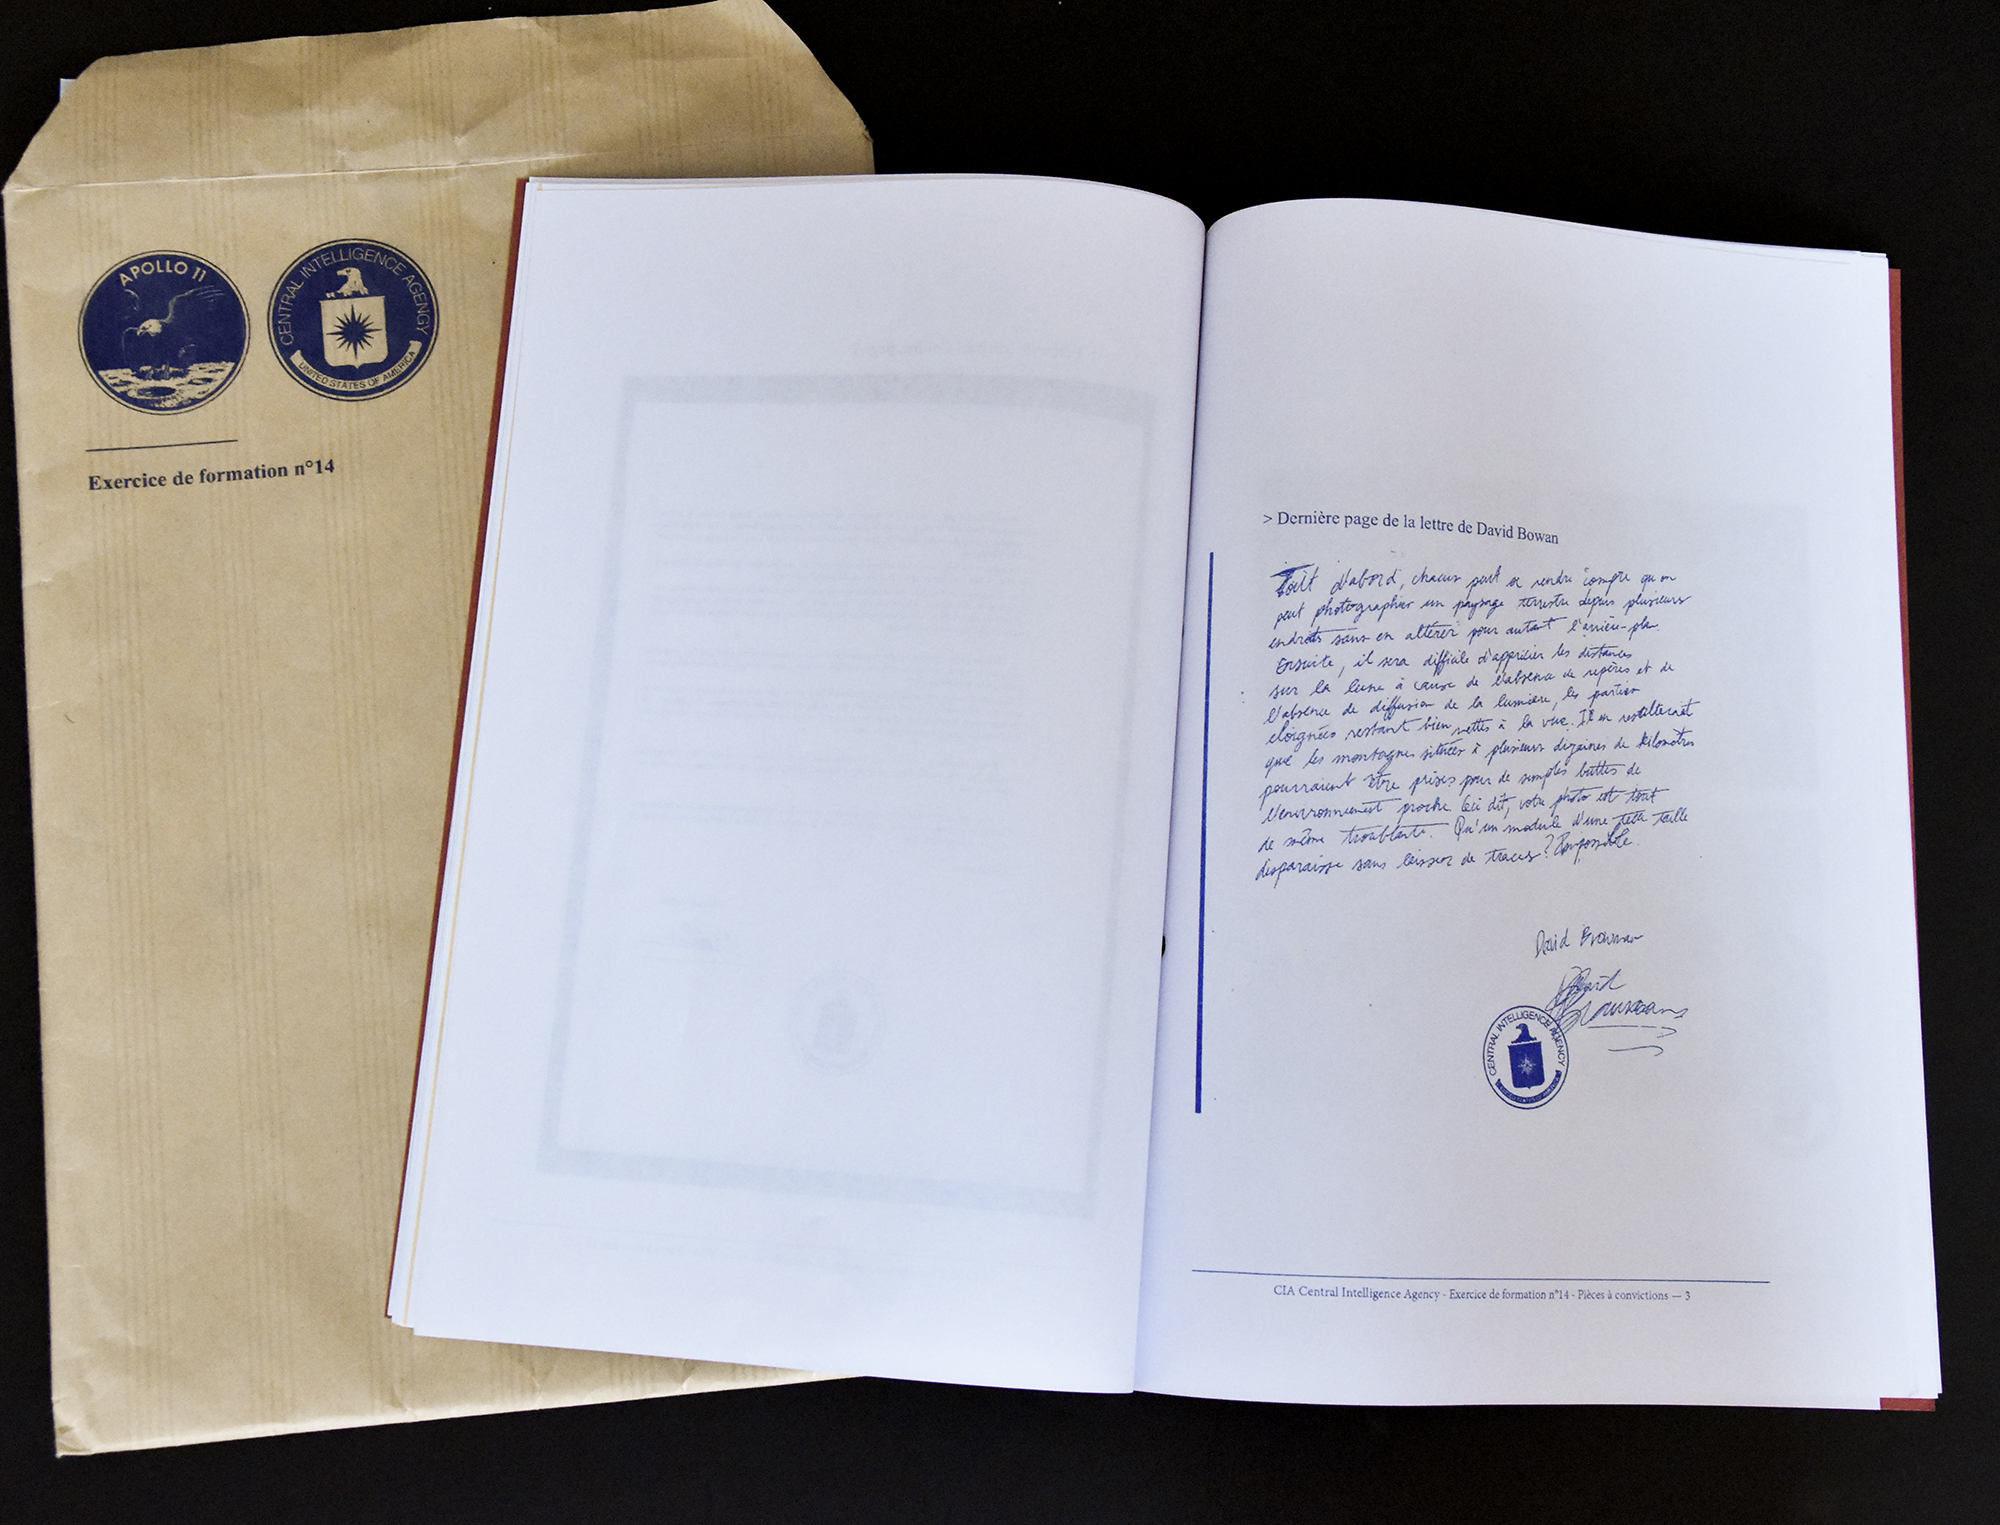 APOLLO 11
CENTRAL INTELLIGENCE AGENCY
UNITED STATES OF AMERICA
Exercice de formation n°14
> Dernière page de la lettre de David Bowan
Tout d'abord, chacun peut se rendre compte qu'on
peut photographier un paysage terrestre depuis plusieurs
endroits sans en altérer pour autant l'arrière-plan.
Ensuite, il sera difficile d'apprécier les distances
sur la lune à cause de l'absence de repères et de
l'absence de diffusion de la lumière, les parties
éloignées restant bien nettes à la vue. Il en resulterait
que les montagnes situées à plusieurs dizaines de kilomètres
pourraient être prises pour de simples buttes de
l'environnement proche. Ceci dit, votre photo est tout
de même troublante. Qu'un module d'une telle taille
disparaisse sans laisser de traces? Impossible.
David Bowman
David
CENTRAL INTELLIGENCE AGENCY
CIA Central Intelligence Agency - Exercice de formation n°14 - Pièces à convictions — 3